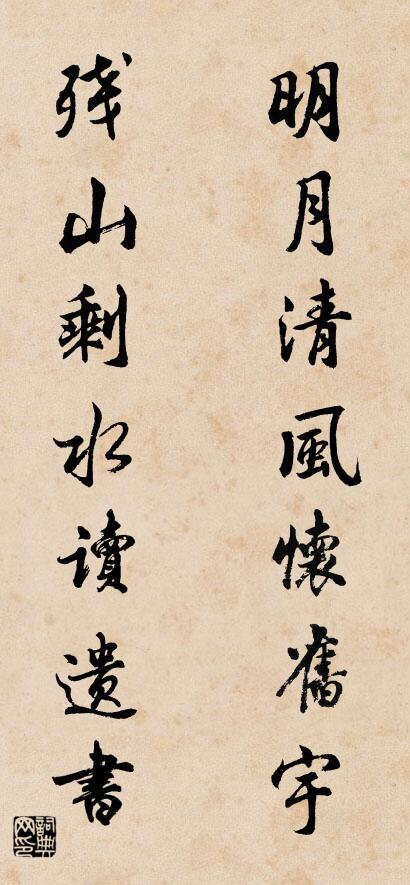 明月清風懷舊宇
残山剩水讀遺書
詞典网印